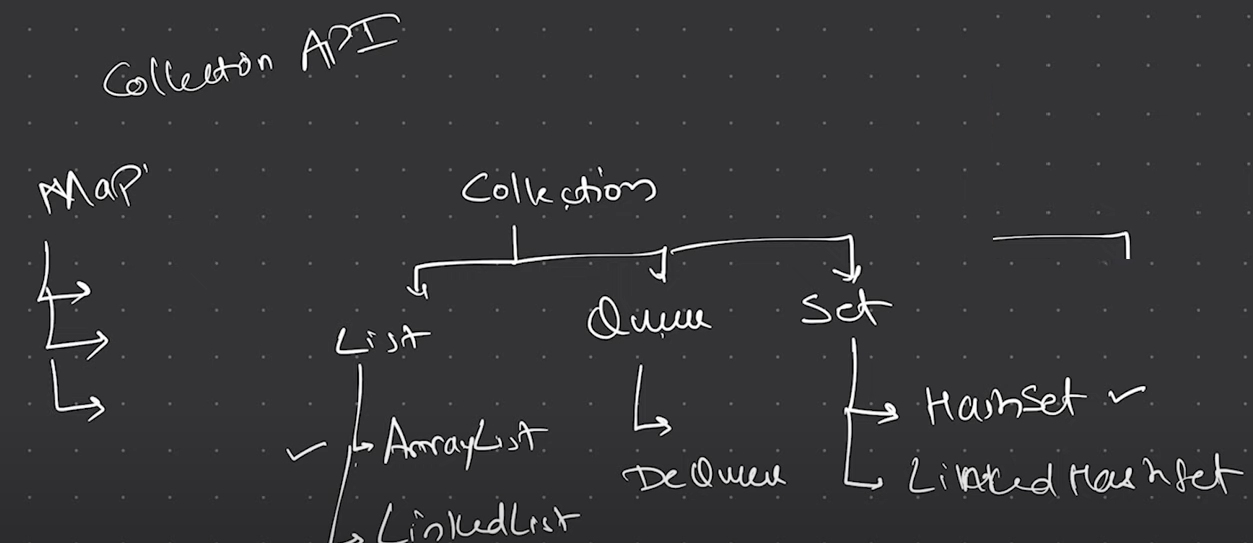 Collection API
Map
Collections
List
Queue
Set
ArrayList
LinkedList
DeQueue
HashSet
LinkedHashSet